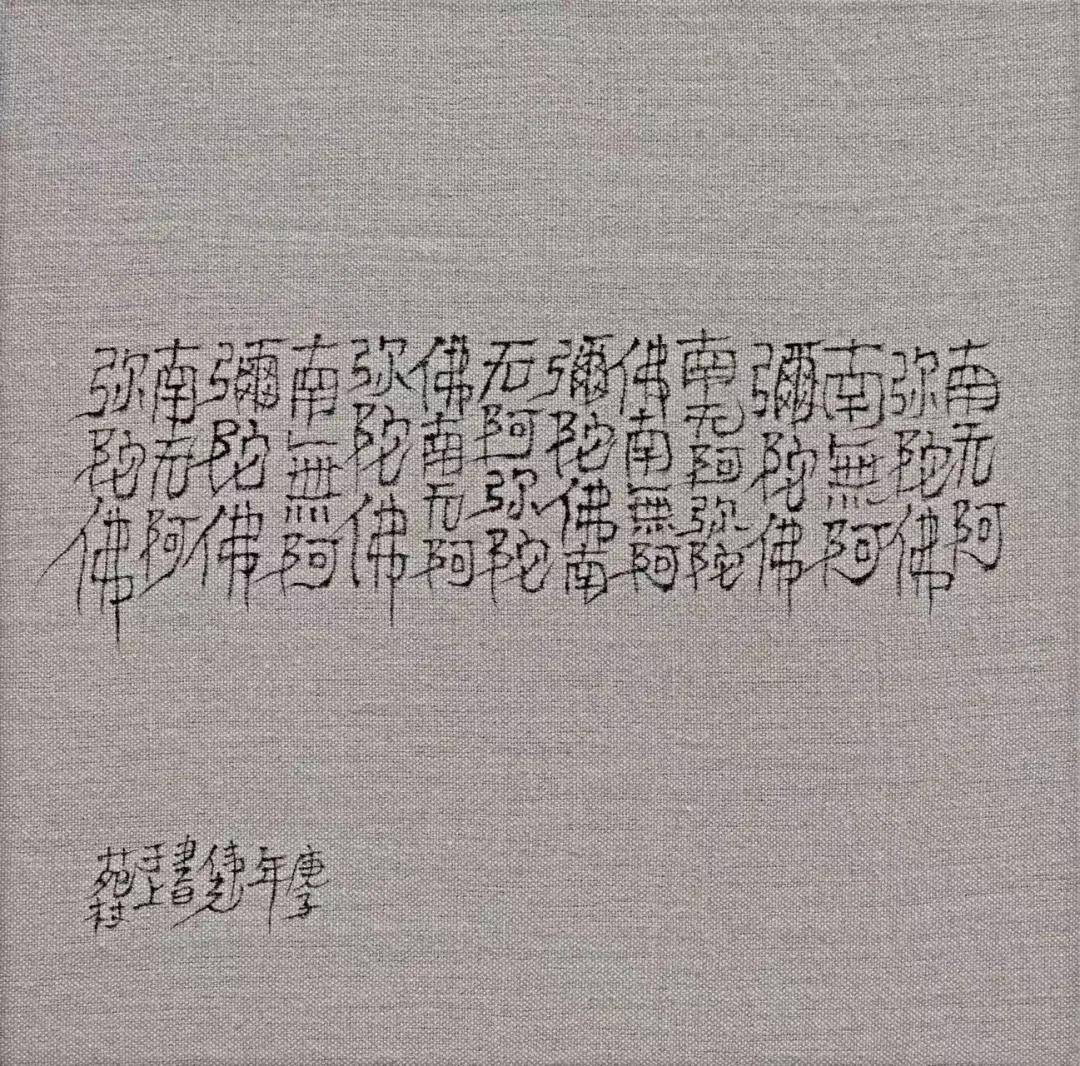 南无阿
弥陀佛
南無阿
彌陀佛
南无阿弥陀
佛南無阿
彌陀佛南
无阿弥陀
佛南无阿
弥陀佛
南無阿
彌陀佛
南无阿
弥陀佛
庚子
年
書
于上
苑村